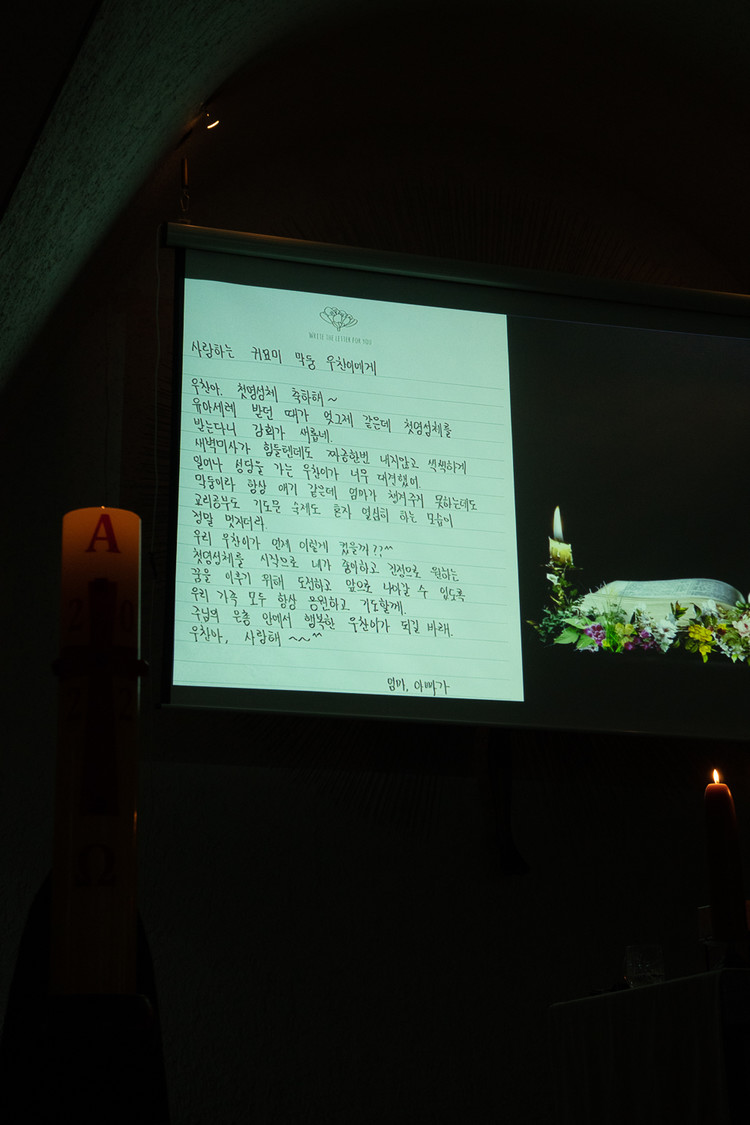 WRITE THE LETTER FOR YOU
사랑하는 귀요미 막둥 우찬이에게
우찬아, 첫영성체 축하해~
유아세례 받던 때가 엊그제 같은데 첫영성체를
받는다니 감회가 새롭네.
새벽미사가 힘들텐데도 짜증한번 내지않고 씩씩하게
일어나 성당을 가는 우찬이가 너무 대견했어.
막둥이라 항상 애기 같은데 엄마가 챙겨주지 못하는데도
교리공부도 기도문 숙제도 혼자 열심히 하는 모습이
정말 멋지더라.
우리 우찬이가 언제 이렇게 컸을까??^^
첫영성체를 시작으로 네가 좋아하고 진정으로 원하는
꿈을 이루기 위해 도전하고 앞으로 나아갈 수 있도록
우리 가족 모두 항상 응원하고 기도할께.
주님의 은총 안에서 행복한 우찬이가 되길 바래.
우찬아, 사랑해 ~~^^
엄마, 아빠가
Α
2 0
2
Ω